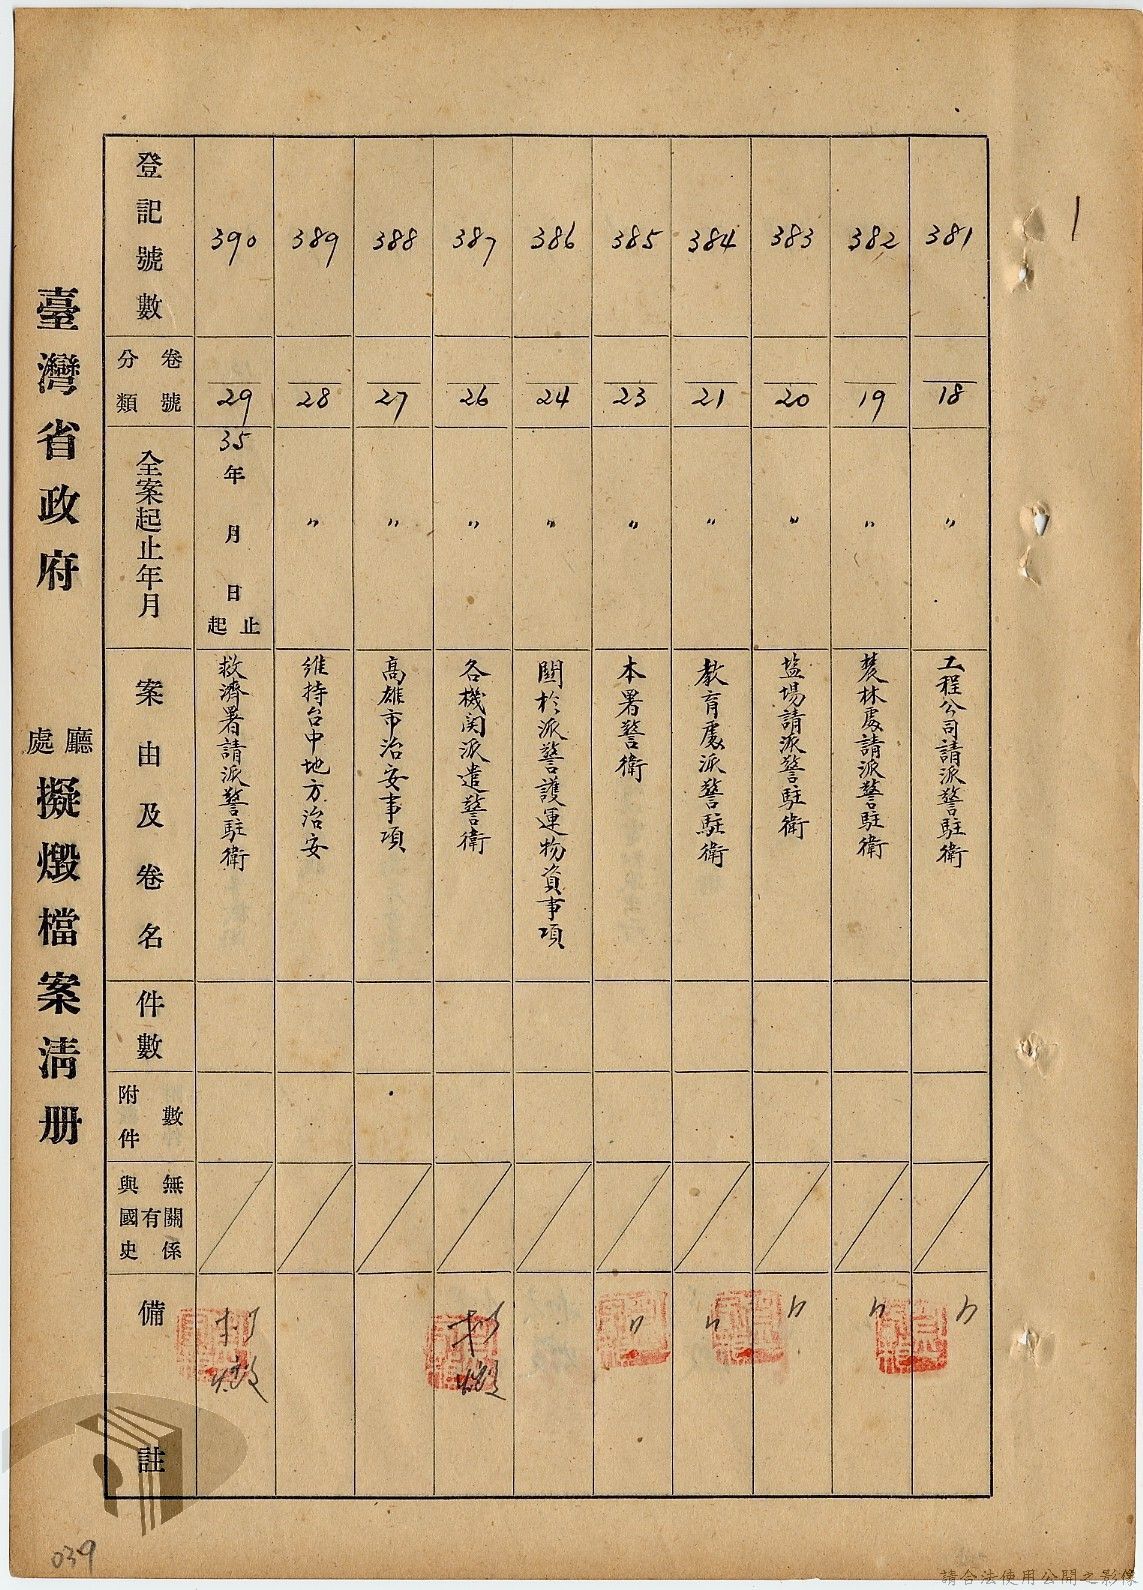 1
臺灣省政府 廳處 擬燬檔案清册
登記號數 381 382 383 384 385 386 387 388 389 390
分類 卷號 18 19 20 21 23 24 26 27 28 29
全案起止年月 〃 〃 〃 〃 〃 〃 〃 〃 〃 35年 月 日 起止
案由及卷名
工程公司請派警駐衛
農林處請派警駐衛
塩場請派警駐衛
教育處派警駐衛
本署警衛
關於派警護運物資事項
各機関派遣警衛
高雄市治安事項
維持台中地方治安
救濟署請派警駐衛
件數
附件數
與國史有無關係
備註
擬燬
擬燬
039
請合法使用公開之影像